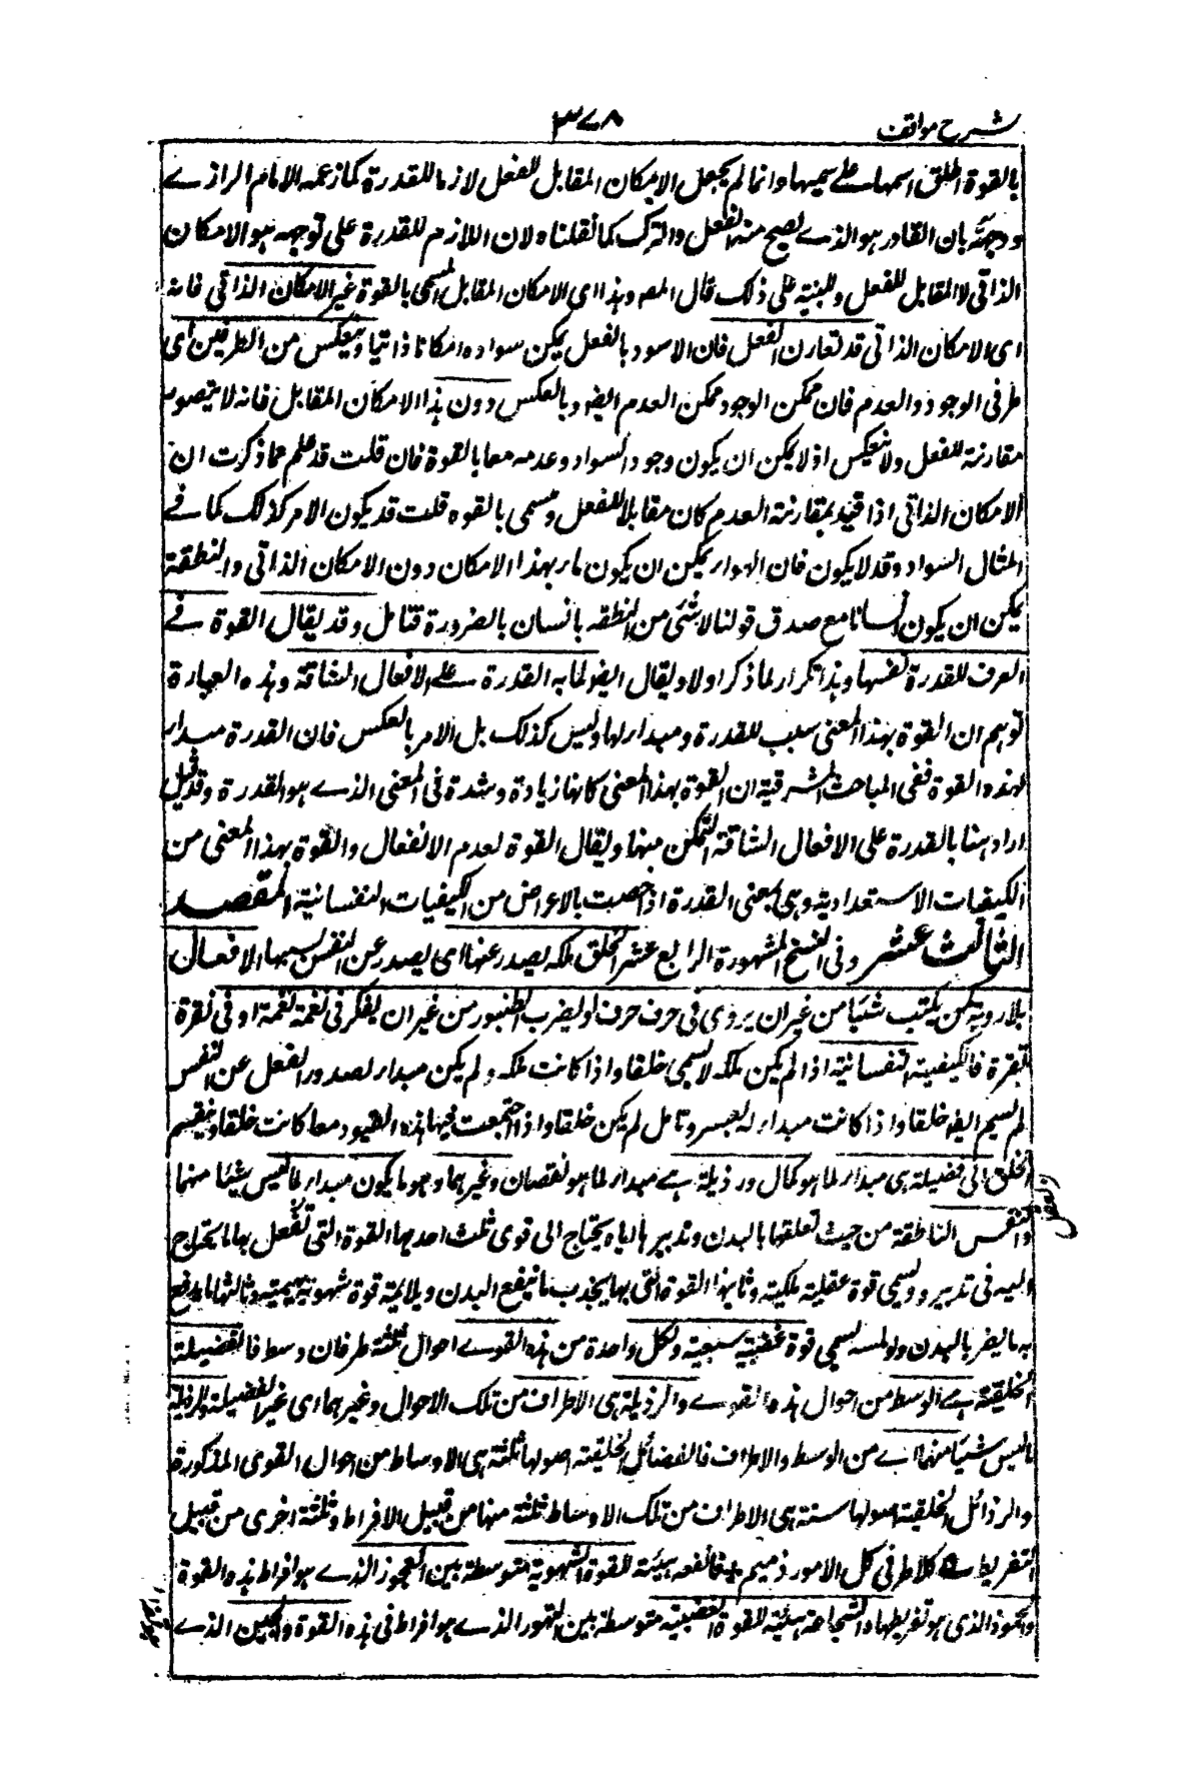 شرح مواقف
٣٧٨
بالقوة اطلق اسمها على سميها وانما لم يجعل الامكان المقابل للفعل لازما للقدرة كما زعمه الامام الرازے
ووجهه بان القادر هو الذے يصح منه الفعل والترك كما نقلناه لان اللازم للقدرة على توجهه هو الامكان
الذاتي لا المقابل للفعل وللتنبيه على ذلك قال المصر وهذا اى الامكان المقابل المسمى بالقوة غير الامكان الذاتي فانه
اى الامكان الذاتي قد تقارن الفعل فان الاسود بالفعل يمكن سواده امكانا ذاتيا وينعكس من الطرفين اى
طرفي الوجود والعدم فان ممكن الوجود ممكن العدم ايضه وبالعكس دون هذا الامكان المقابل فانه لا يتصور
مقارنته للفعل ولا ينعكس اذ لا يمكن ان يكون وجود السواد وعدمه معا بالقوة فان قلت قد علم مما ذكرت ان
الامكان الذاتي اذا قيد بمقارنته العدم كان مقابلا للفعل ومسمى بالقوه قلت قد يكون الامر كذلك كما فے
المثال السواد وقد لا يكون فان الهواء يمكن ان يكون ماء بهذا الامكان دون الامكان الذاتي والنطقة
يمكن ان يكون انسانا مع صدق قولنا لا شئ من النطفه بانسان بالضرورة فتامل وقد يقال القوة فے
العرف للقدرة نفسها وهذا تكرار لما ذكر اولا ويقال ايضه لما به القدرة علے الافعال الشاقة وهذه العبارة
توهم ان القوة بهذا المعنى سبب للقدرة ومبداء لها وليس كذلك بل الامر بالعكس فان القدرة مبداء
لهذه القوة ففي المباحث المشرقية ان القوة بهذا المعنى كانها زيادة وشدة في المعنى الذے هو القدرة وقد قيل
اراد ههنا بالقدرة على الافعال الشاقة التمكن منها ويقال القوة لعدم الانفعال والقوة بهذا المعنى من
الكيفيات الاستعدادية وهي بمعنى القدرة اذا خصت بالاعراض من الكيفيات النفسانية المقصد
الثالث عشر وفي النسخ المشهورة الرابع عشر الخلق ملكه يصدر عنها اى يصدر عن النفس بسببها الافعال
بلا روية كمن يكتب شيئا من غير ان يروى في حرف حرف او يضرب الطنبور من غير ان يفكر في نغمة نغمة او في نقرة
نقرة فالكيفية النفسانية اذا لم يكن ملكه لا يسمى خلقا واذا كانت ملكه ولم يكن مبداء لصدور الفعل عن النفس
لم يسم ايضه خلقا واذا كانت مبداء له بعسر وتامل لم يكن خلقا واذا اجتمعت فيها هذه القيود معا كانت خلقا وينقسم
الخلق الى فضيلة هي مبداء لما هو كمال ورذيلة هے مبداء لما هو نقصان وغيرهما وهو ما يكون مبداء لما ليس شيئا منهما
والنفس الناطقة من حيث تعلقها بالبدن وتدبيرها اياه يحتاج الى قوى ثلث احدها القوة التي تعقل بها ما يحتاج
اليه في تدبيره ويسمى قوة عقلية ملكية وثانيها القوة التي بها يجذب ما ينفع البدن ويلائمه قوة شهوية بهيمية وثالثها ما يدفع
به ما يضر بالبدن ويولمه يسمى قوة غضبية سبعية ولكل واحدة من هذه القوے احوال ثلثة طرفان ووسط فالفضيلة
الخلقية هے الوسط من احوال هذه القوے والرذيلة هي الاطراف من تلك الاحوال وغيرهما اى غير الفضيلة والرذيلة
ما ليس شيئا منهما اے من الوسط والاطراف فالفضائل الخلقية اصولها ثلثة هي الاوساط من احوال القوى المذكورة
والرذائل الخلقية اصولها ستة هي الاطراف من تلك الاوساط ثلثة منها من قبيل الافراط وثلثة اخرى من قبيل
التفريط كلا طرفي كل الامور ذميم فالعفه هيئة للقوة الشهوية متوسطة بين الفجور الذے هو افراط هذه القوة
والخمود الذى هو تفريطها والشجاعة هيئة للقوة الغضبية متوسطة بين التهور الذے هو افراط في هذه القوة والجبن الذے